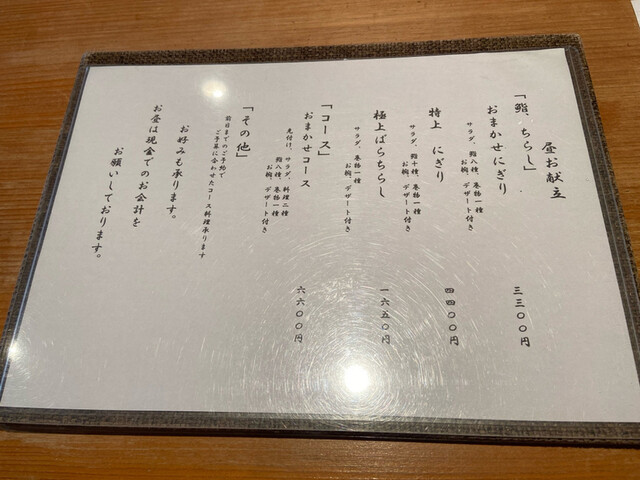 昼お献立
「鮨、ちらし」
おまかせにぎり 三三〇〇円
サラダ、鮨八種、巻物一種
お椀、デザート付き
特上 にぎり 四四〇〇円
サラダ、鮨十種、巻物一種
お椀、デザート付き
極上ばらちらし 一六五〇円
サラダ、巻物一種
お椀、デザート付き
「コース」
おまかせコース 六六〇〇円
先付け、サラダ、料理二種
鮨八種、巻物一種
お椀、デザート付き
「その他」
前日までのご予約で
ご予算に合わせたコース料理承ります
お好みも承ります。
お昼は現金でのお会計を
お願いしております。